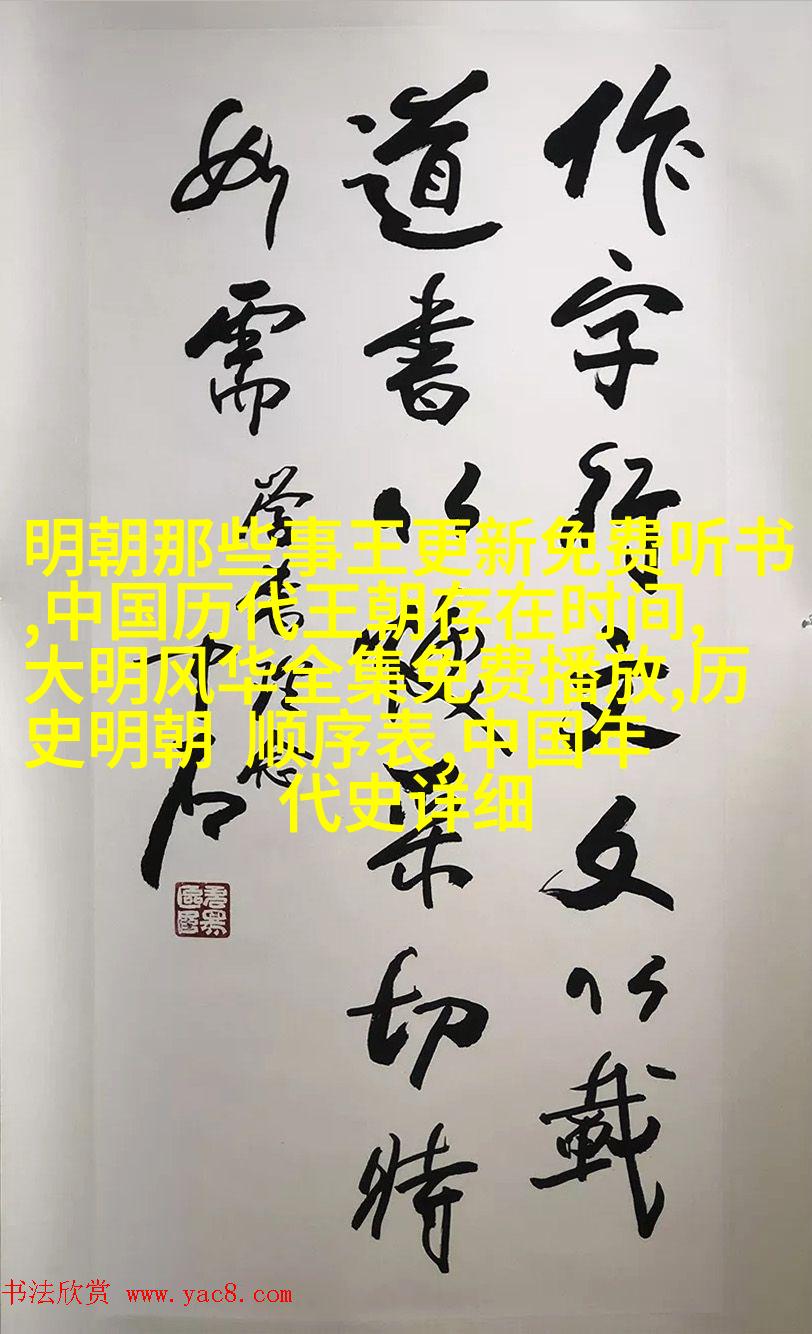 作字行文文以載
道書以煥采切時
如需
学書
中石
明朝那些事王更新免费听书
,中国历代王朝存在时间,
大明风华全集免费播放,历
史明朝 顺序表,中国年
代史详细
书法欣赏 www.yac8.com